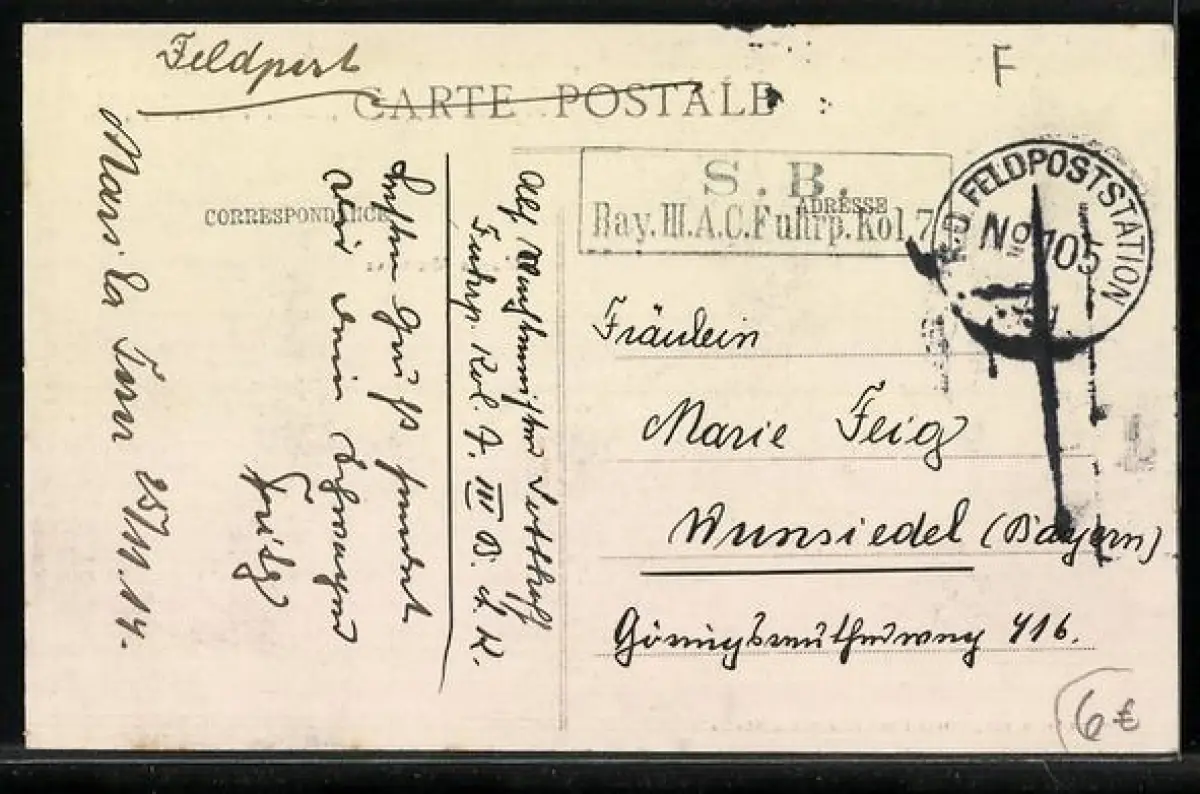 Feldpost
CARTE POSTALE
F
CORRESPONDANCE
ADRESSE
S. B.
Bay. III. A.C. Fuhrp. Kol. 7
K.D. FELDPOSTSTATION
No 105
Mars la Tour 25/11.14.
Gruß sendet
Dir Dein Schwager
Fritz
Abs.
Fuhrp. Kol. 7. III B. A. K.
Fräulein
Marie Feig
Wunsiedel (Bayern)
416.
6€